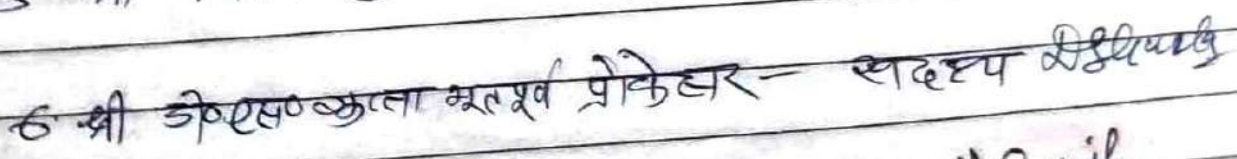 6 श्री डी०एस० भूतपूर्व प्रोफेसर - सदस्य